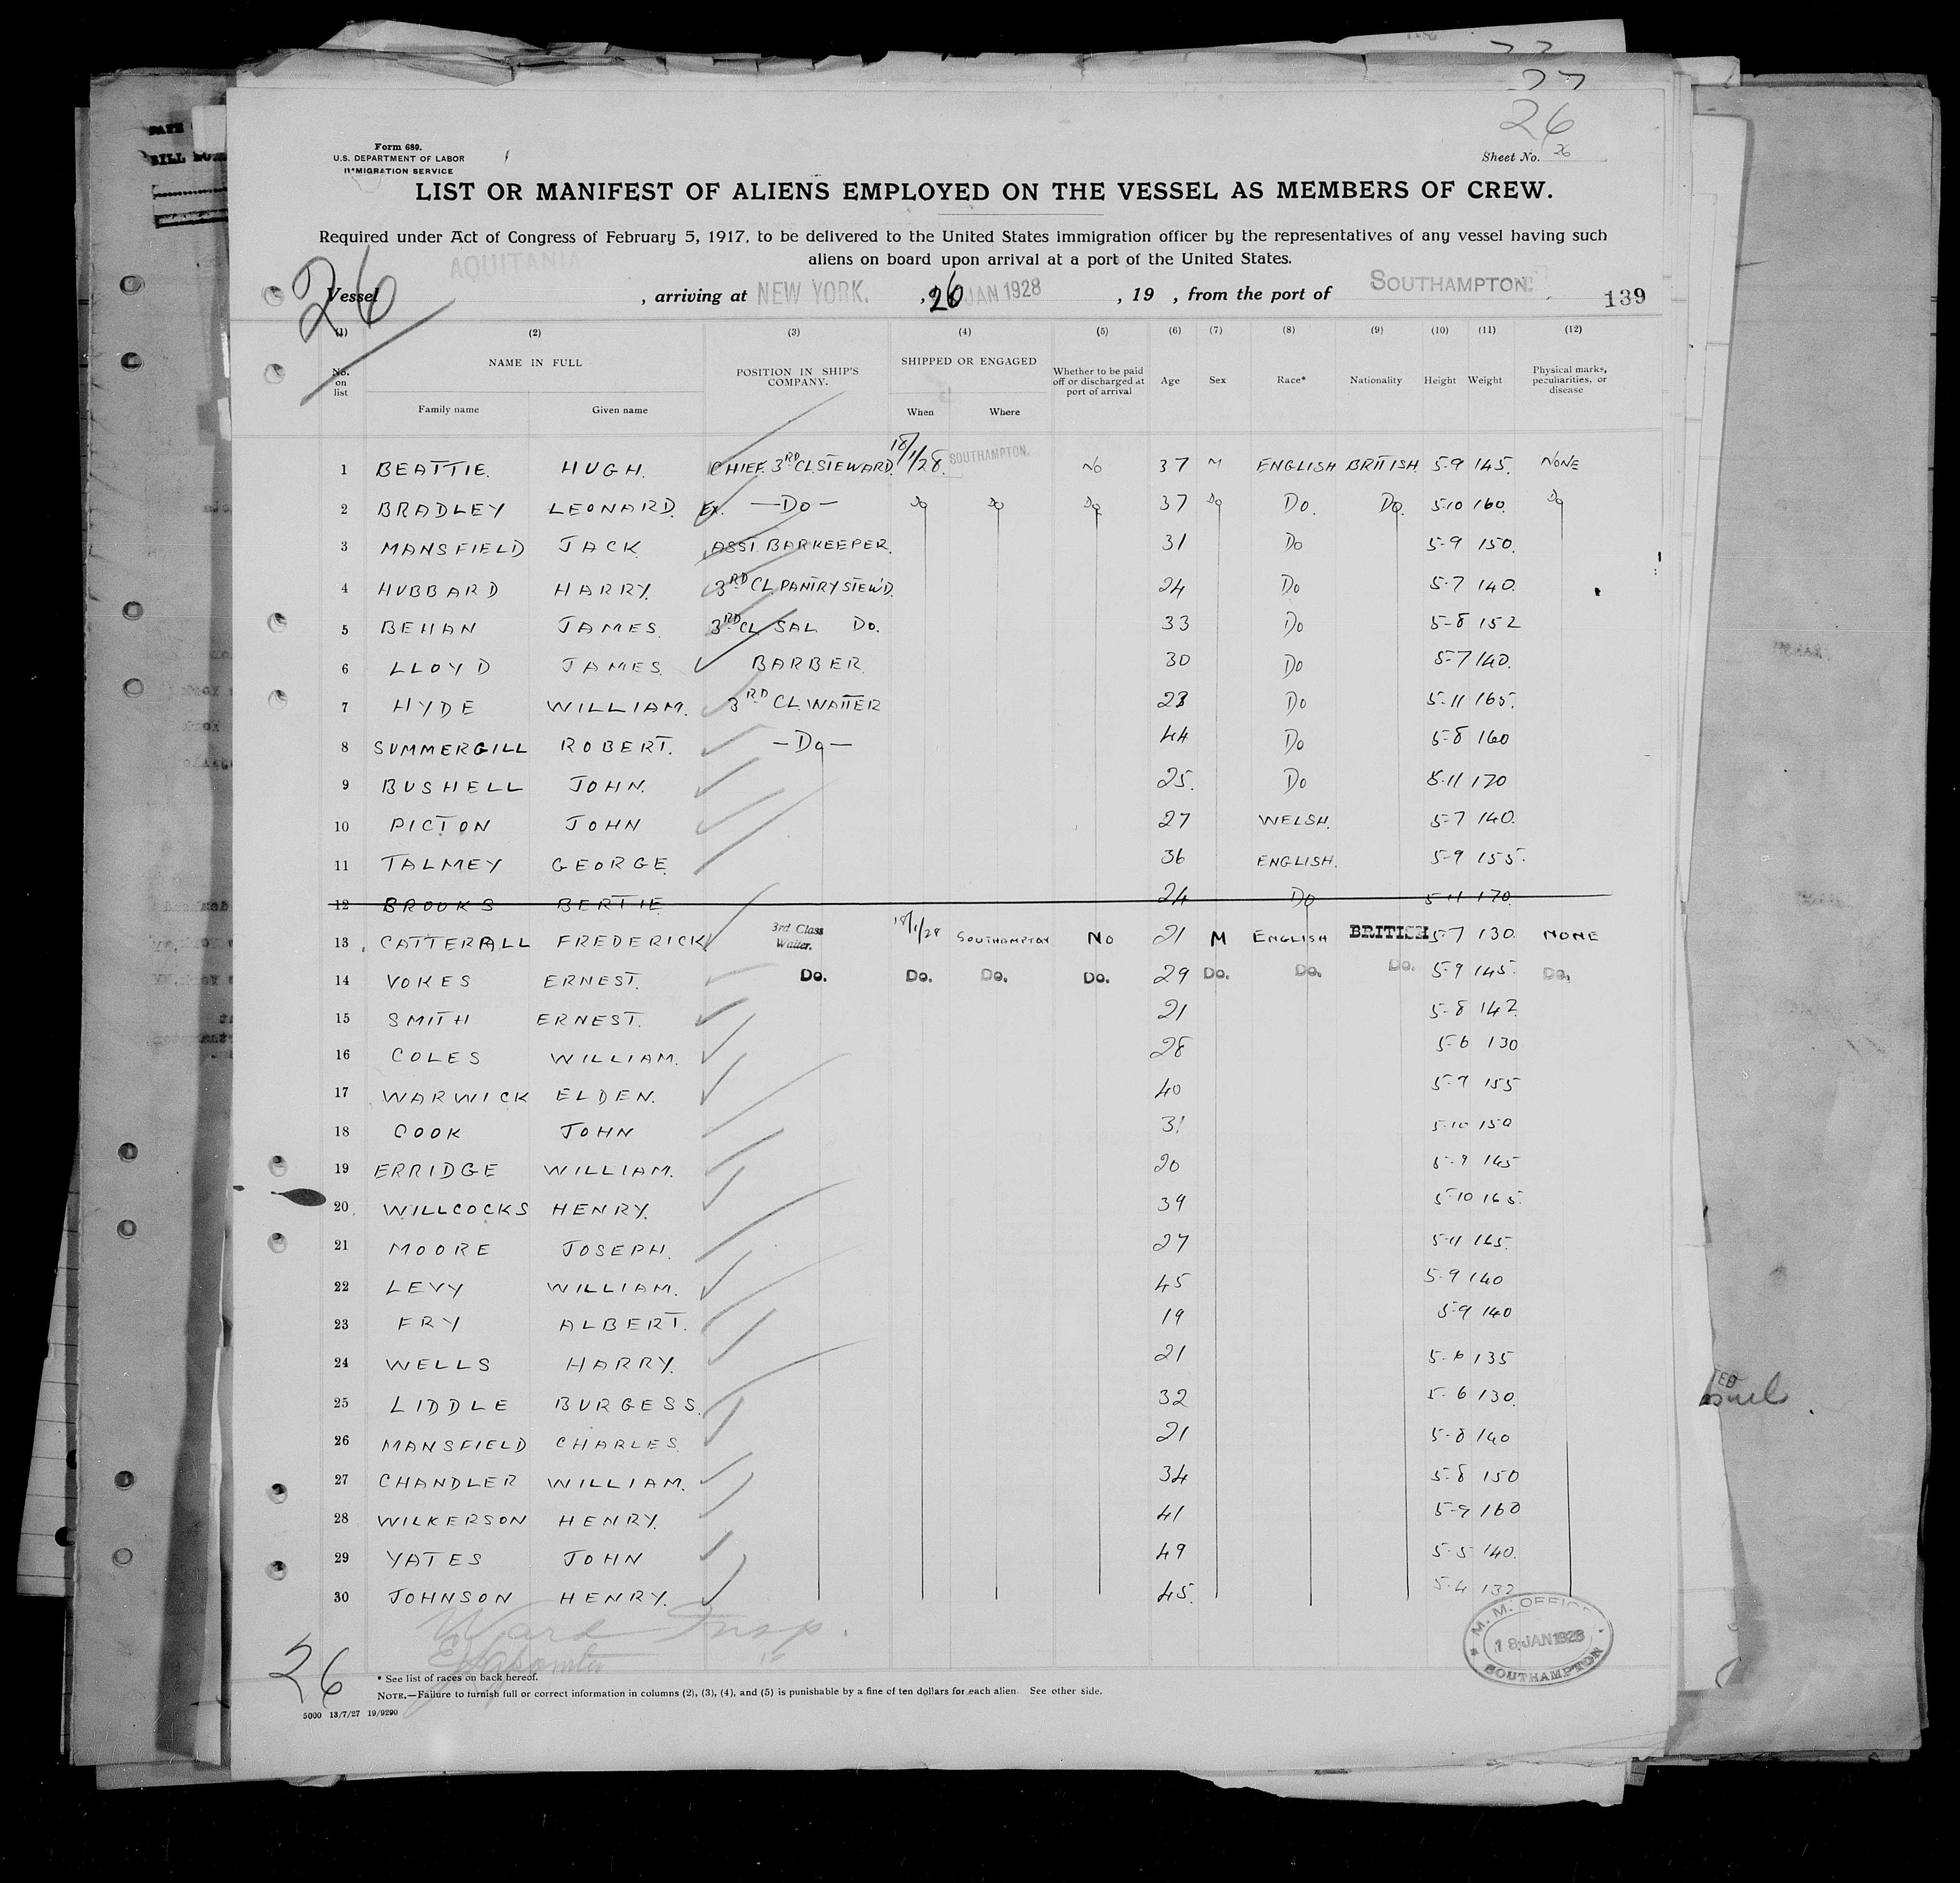 26
Form 680.
U.S. DEPARTMENT OF LABOR
IMMIGRATION SERVICE
Sheet No. 26
LIST OR MANIFEST OF ALIENS EMPLOYED ON THE VESSEL AS MEMBERS OF CREW.
Required under Act of Congress of February 5, 1917, to be delivered to the United States immigration officer by the representatives of any vessel having such
aliens on board upon arrival at a port of the United States.
26
Vessel AQUITANIA, arriving at NEW YORK. , 26 JAN 1928 , 19 , from the port of SOUTHAMPTON. 139
(1) (2) (3) (4) (5) (6) (7) (8) (9) (10) (11) (12)
No. on list NAME IN FULL Family name Given name POSITION IN SHIP'S COMPANY. SHIPPED OR ENGAGED When Where Whether to be paid off or discharged at port of arrival Age Sex Race* Nationality Height Weight Physical marks, peculiarities, or disease
1 BEATTIE. HUGH. CHIEF. 3RD CL. STEWARD. 18/1/28. SOUTHAMPTON. No 37 M ENGLISH BRITISH. 5-9 145. NONE
2 BRADLEY LEONARD. Ex. —Do— Do Do Do 37 Do Do. Do. 5-10 160. Do
3 MANSFIELD JACK ASST. BARKEEPER. 31 Do 5-9 150.
4 HUBBARD HARRY. 3RD CL PANTRY STEW'D. 24 Do 5-7 140.
5 BEHAN JAMES. 3RD CL SAL. Do. 33 Do 5-8 152
6 LLOYD JAMES. BARBER. 30 Do 5-7 140.
7 HYDE WILLIAM. 3RD CL. WAITER 23 Do 5-11 165.
8 SUMMERGILL ROBERT. —Do— 44 Do 5-8 160
9 BUSHELL JOHN. 25. Do 5-11 170
10 PICTON JOHN 27 WELSH. 5-7 140.
11 TALMEY GEORGE. 36 ENGLISH. 5-9 155.
12 BROOKS BERTIE 24 Do 5-11 170
13 CATTERALL FREDERICK 3rd Class Waiter. 18/1/28 SOUTHAMPTON No 21 M ENGLISH BRITISH 5-7 130. NONE
14 VOKES ERNEST. Do. Do. Do. Do. 29 Do. Do. Do. 5-9 145. Do.
15 SMITH ERNEST. 21 5-8 142.
16 COLES WILLIAM. 28 5-6 130
17 WARWICK ELDEN. 40 5-9 155
18 COOK JOHN 31 5-10 150
19 ERRIDGE WILLIAM. 20 5-9 145
20 WILLCOCKS HENRY. 39 5-10 165.
21 MOORE JOSEPH. 27 5-11 165.
22 LEVY WILLIAM. 45 5-9 140
23 FRY ALBERT. 19 5-9 140
24 WELLS HARRY. 21 5-6 135
25 LIDDLE BURGESS. 32 5-6 130.
26 MANSFIELD CHARLES 21 5-8 140
27 CHANDLER WILLIAM. 34 5-8 150
28 WILKERSON HENRY. 41 5-9 160
29 YATES JOHN 49 5-5 140.
30 JOHNSON HENRY. 45. 5-4 132
Ward Insp.
M. M. OFFICE
18 JAN 1928
SOUTHAMPTON
26
* See list of races on back hereof.
NOTE.—Failure to furnish full or correct information in columns (2), (3), (4), and (5) is punishable by a fine of ten dollars for each alien. See other side.
5000 13/7/27 19/9290